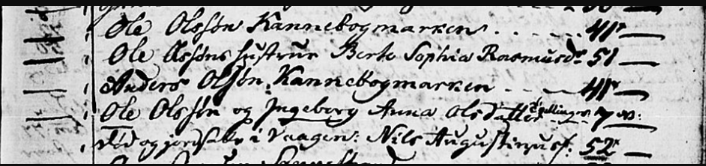 Ole Olsøn Kannebogmarken . . . . . 41 —
Ole Olsøns hustrue Berte Sophia Rasmusdr 51 —
Anders Olsøn Kannebogmarken . . . 41 —
Ole Olsøn og Ingeborg Anna Olsdatter tvillinger 7
og i Vaagen: Nils Augustinus: 52